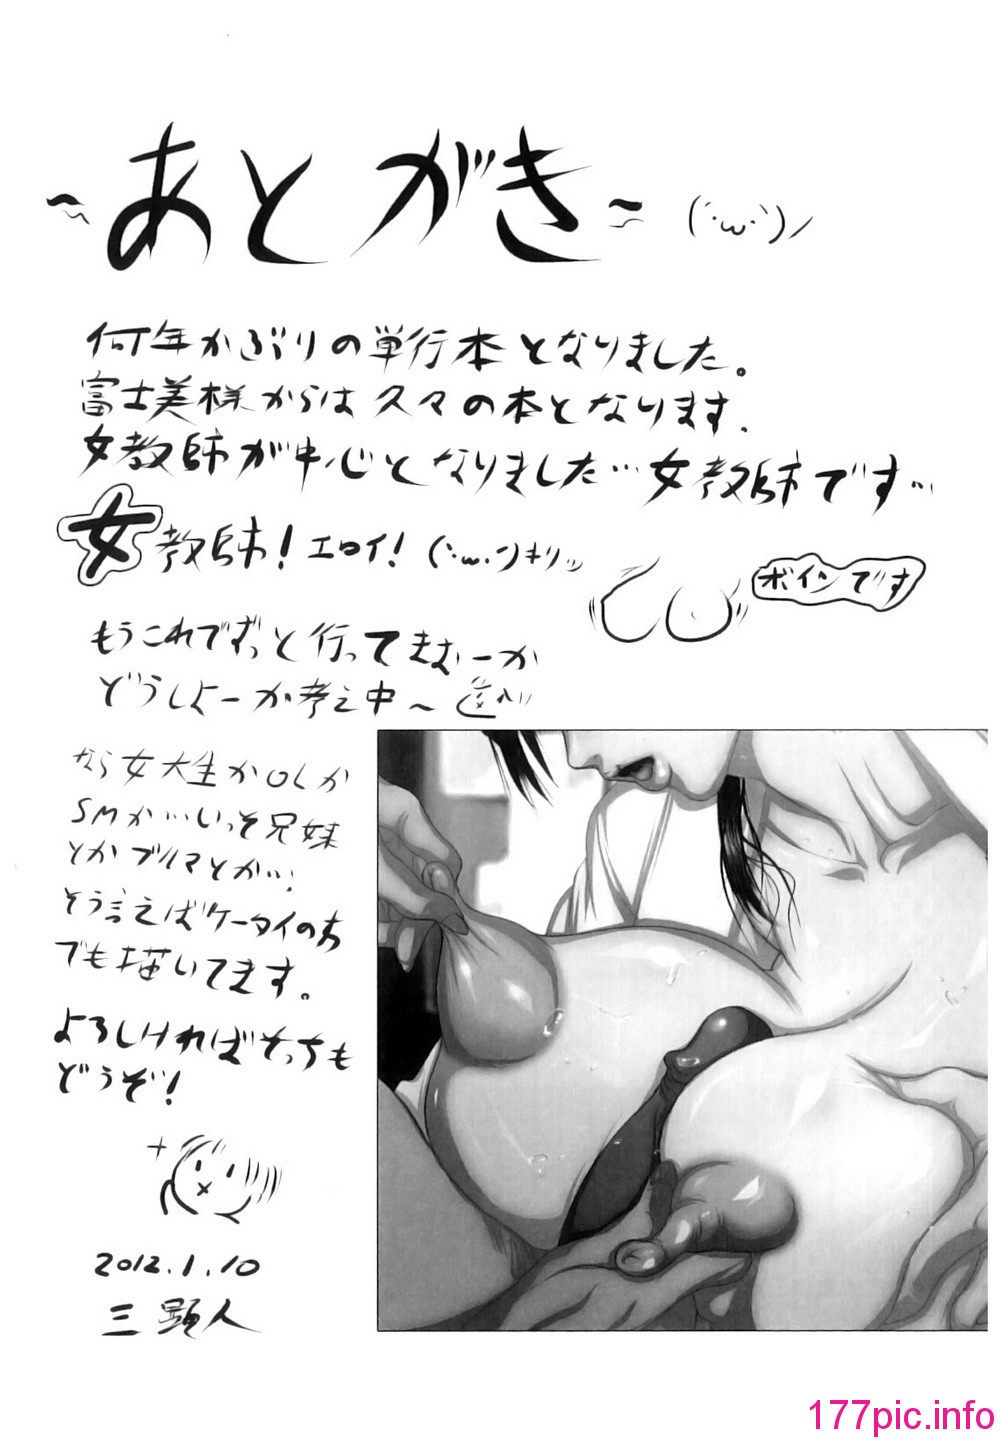 ～あとがき～ (´･ω･`)ノ
何年かぶりの単行本となりました。
富士美様からは久々の本となります。
女教師が中心となりました…女教師です…
女教師！エロイ！(`･ω･´)キリッ
ボインです
もうこれでずっと行ってきむーか
どうしよーか考え中～
なら女大生かOLか
SMか…いっそ兄妹
とかブルマとか…！
そう言えばケータイのお
でも描いてます。
よろしければそっちも
どうぞ！
2012.1.10
三顕人
177pic.info